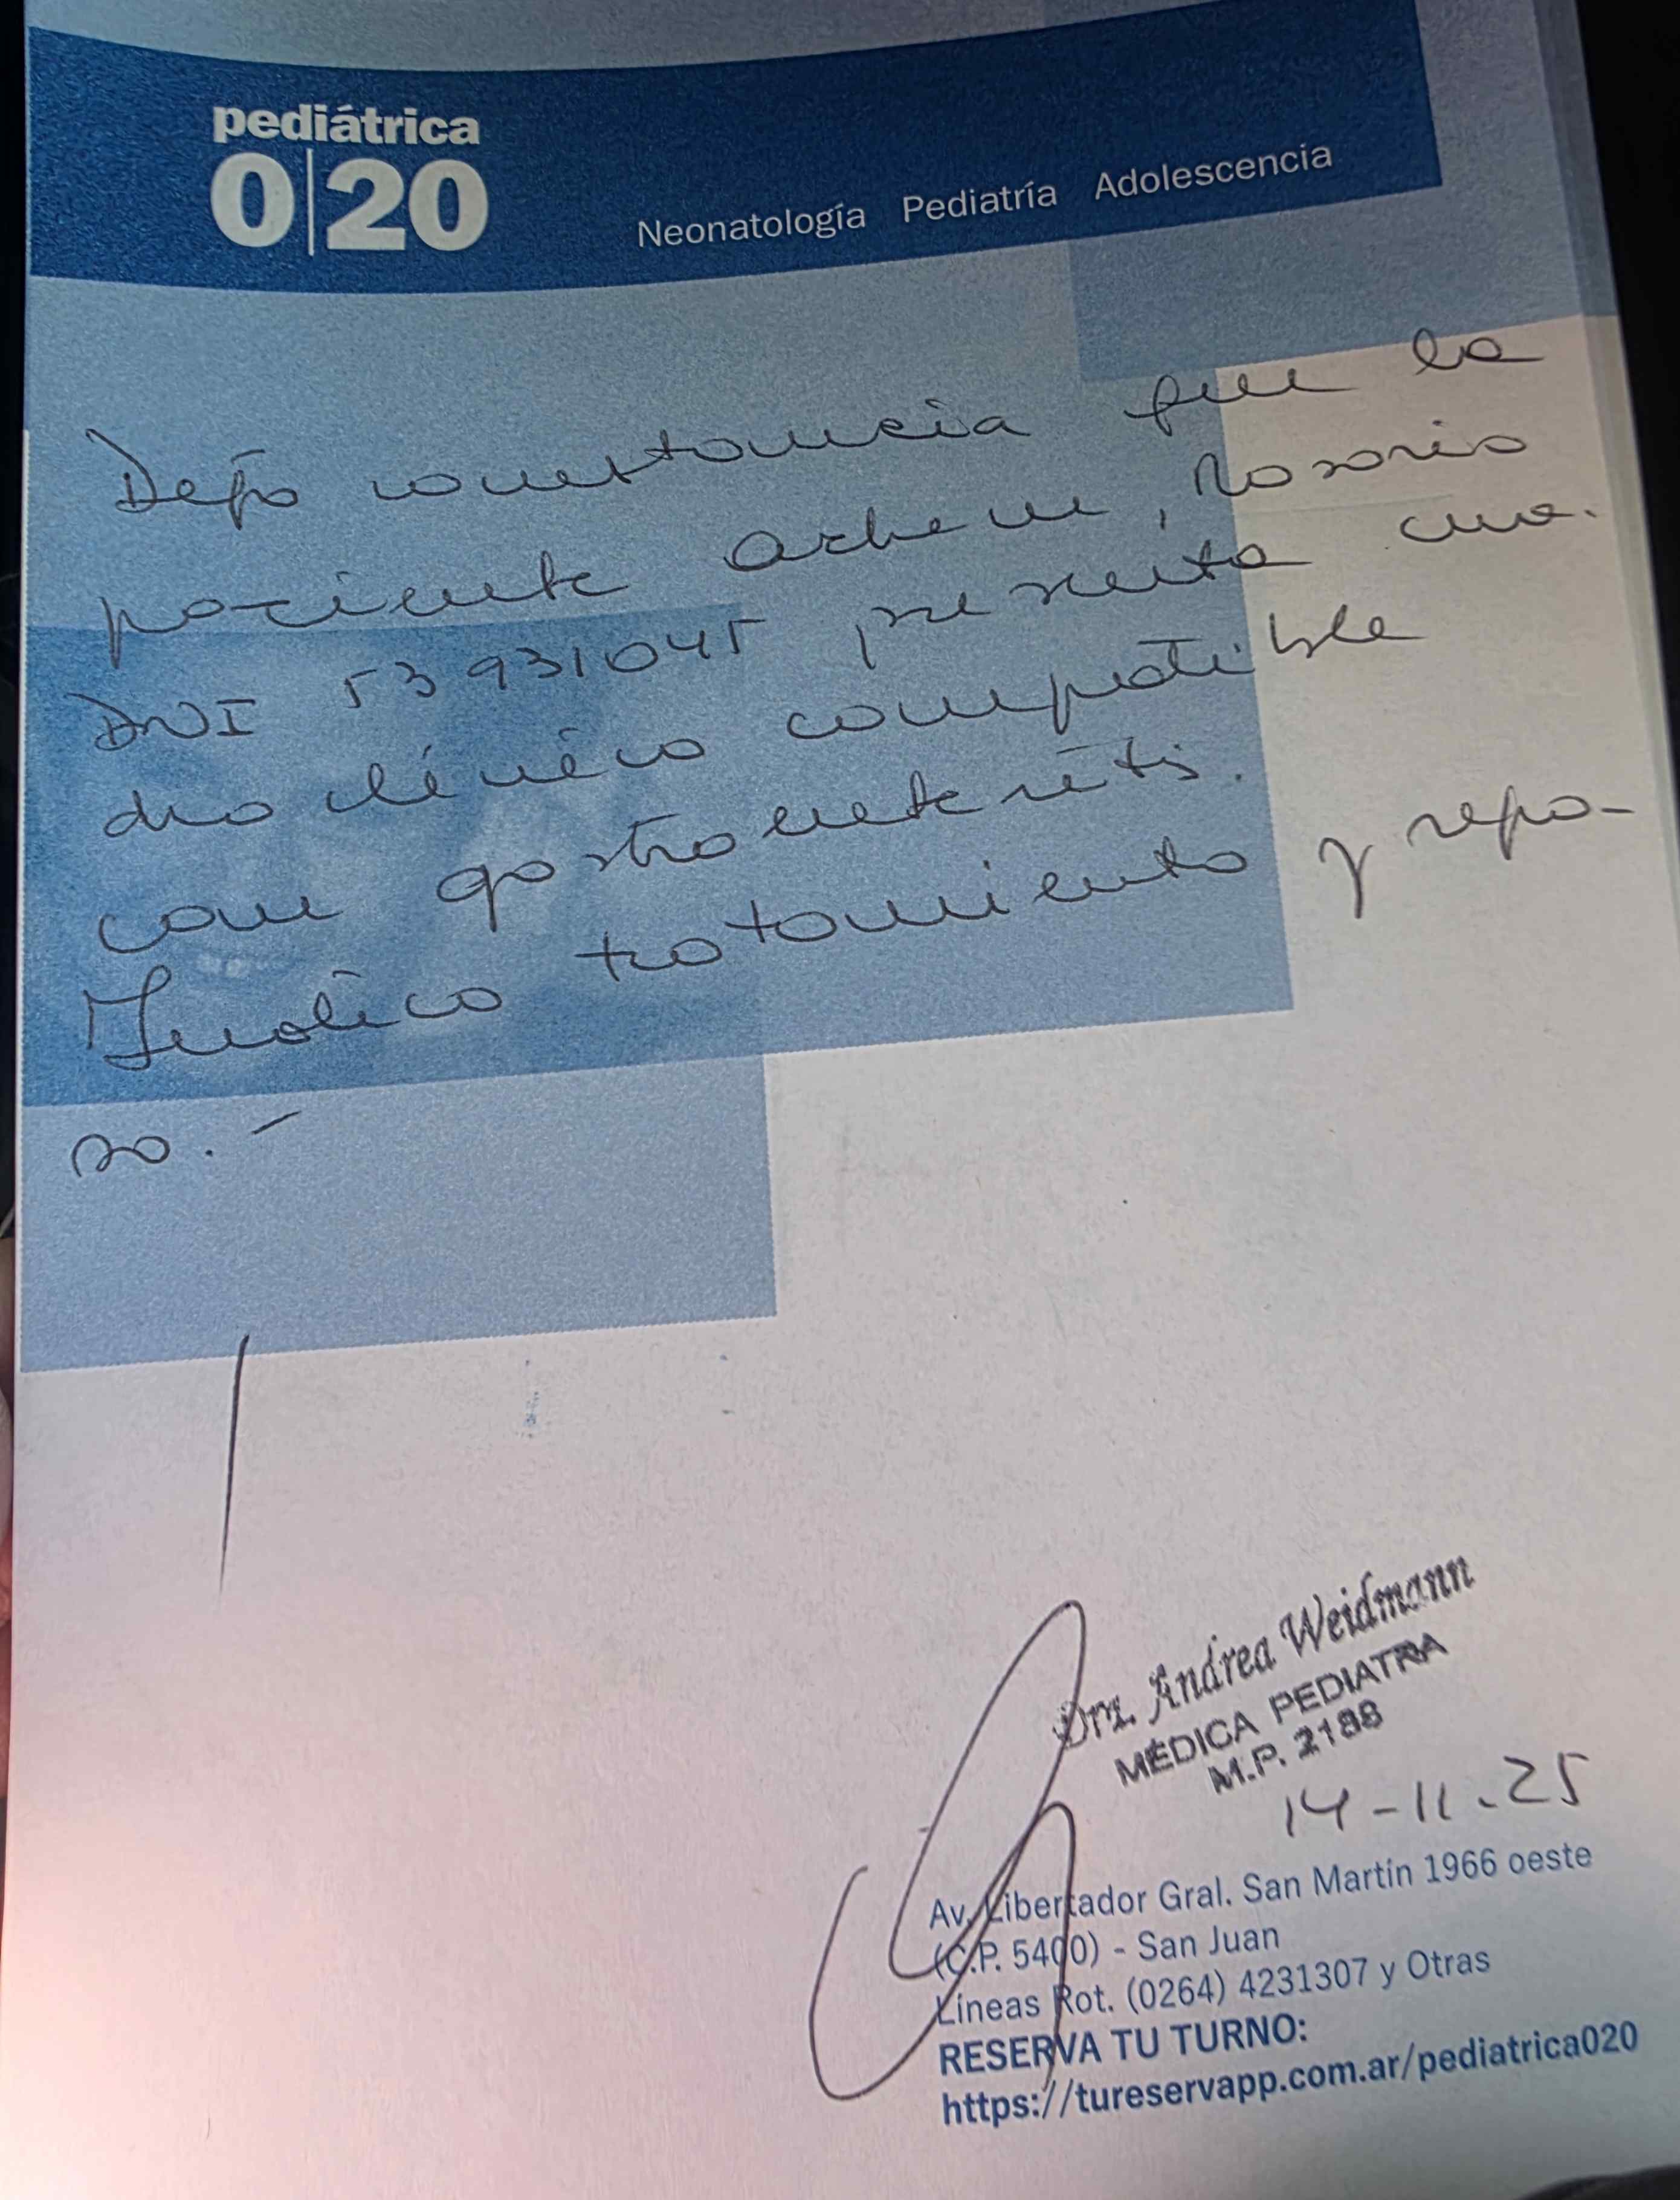 pediátrica
0|20
Neonatología Pediatría Adolescencia
Dejo constancia que la
paciente Achem, Rosario
DNI 53931045 presenta cua-
dro clínico compatible
con gastroenteritis.
Indico tratamiento y repo-
so.-
Dra. Andrea Weidmann
MÉDICA PEDIATRA
M.P. 2188
14-11-25
Av. Libertador Gral. San Martín 1966 oeste
(C.P. 5400) - San Juan
Líneas Rot. (0264) 4231307 y Otras
RESERVA TU TURNO:
https://tureservapp.com.ar/pediatrica020